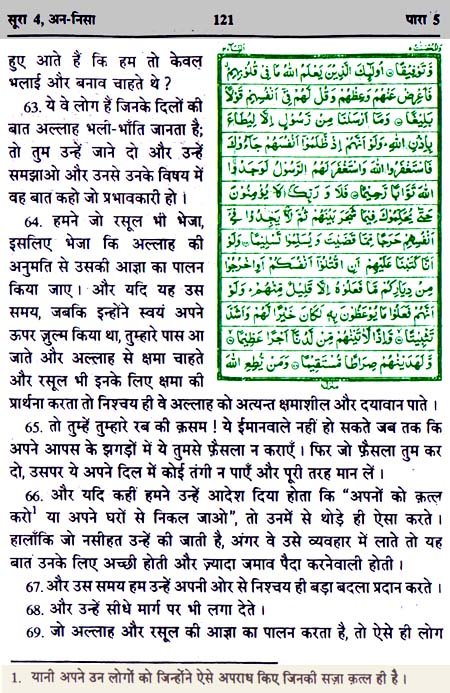 सूरा 4, अन-निसा 121 पारा 5
हुए आते हैं कि हम तो केवल
भलाई और बनाव चाहते थे ?
63. ये वे लोग हैं जिनके दिलों की
बात अल्लाह भली-भाँति जानता है;
तो तुम उन्हें जाने दो और उन्हें
समझाओ और उनसे उनके विषय में
वह बात कहो जो प्रभावकारी हो ।
64. हमने जो रसूल भी भेजा,
इसलिए भेजा कि अल्लाह की
अनुमति से उसकी आज्ञा का पालन
किया जाए । और यदि यह उस
समय, जबकि इन्होंने स्वयं अपने
ऊपर ज़ुल्म किया था, तुम्हारे पास आ
जाते और अल्लाह से क्षमा चाहते
और रसूल भी इनके लिए क्षमा की
وَّ تَوْفِيْقًا ۞ اُولٰٓئِكَ الَّذِيْنَ يَعْلَمُ اللّٰهُ مَا فِيْ قُلُوْبِهِمْ
فَاَعْرِضْ عَنْهُمْ وَعِظْهُمْ وَقُلْ لَّهُمْ فِيْٓ اَنْفُسِهِمْ قَوْلًۢا
بَلِيْغًا ۞ وَمَآ اَرْسَلْنَا مِنْ رَّسُوْلٍ اِلَّا لِيُطَاعَ
بِاِذْنِ اللّٰهِ ؕ وَلَوْ اَنَّهُمْ اِذْ ظَّلَمُوْٓا اَنْفُسَهُمْ جَآءُوْكَ
فَاسْتَغْفَرُوا اللّٰهَ وَاسْتَغْفَرَ لَهُمُ الرَّسُوْلُ لَوَجَدُوا
اللّٰهَ تَوَّابًا رَّحِيْمًا ۞ فَلَا وَ رَبِّكَ لَا يُؤْمِنُوْنَ
حَتّٰى يُحَكِّمُوْكَ فِيْمَا شَجَرَ بَيْنَهُمْ ثُمَّ لَا يَجِدُوْا فِيْٓ
اَنْفُسِهِمْ حَرَجًا مِّمَّا قَضَيْتَ وَ يُسَلِّمُوْا تَسْلِيْمًا ۞ وَلَوْ
اَنَّا كَتَبْنَا عَلَيْهِمْ اَنِ اقْتُلُوْٓا اَنْفُسَكُمْ اَوِ اخْرُجُوْا
مِنْ دِيَارِكُمْ مَّا فَعَلُوْهُ اِلَّا قَلِيْلٌ مِّنْهُمْ ؕ وَلَوْ
اَنَّهُمْ فَعَلُوْا مَا يُوْعَظُوْنَ بِهٖ لَكَانَ خَيْرًا لَّهُمْ وَاَشَدَّ
تَثْبِيْتًا ۞ وَّاِذًا لَّاٰتَيْنٰهُمْ مِّنْ لَّدُنَّآ اَجْرًا عَظِيْمًا ۞
وَّلَهَدَيْنٰهُمْ صِرَاطًا مُّسْتَقِيْمًا ۞ وَمَنْ يُّطِعِ اللّٰهَ
منزل
प्रार्थना करता तो निश्चय ही वे अल्लाह को अत्यन्त क्षमाशील और दयावान पाते ।
65. तो तुम्हें तुम्हारे रब की क़सम ! ये ईमानवाले नहीं हो सकते जब तक कि
अपने आपस के झगड़ों में ये तुमसे फ़ैसला न कराएँ । फिर जो फ़ैसला तुम कर
दो, उसपर ये अपने दिल में कोई तंगी न पाएँ और पूरी तरह मान लें ।
66. और यदि कहीं हमने उन्हें आदेश दिया होता कि “अपनों को क़त्ल
करो¹ या अपने घरों से निकल जाओ”, तो उनमें से थोड़े ही ऐसा करते ।
हालाँकि जो नसीहत उन्हें की जाती है, अगर वे उसे व्यवहार में लाते तो यह
बात उनके लिए अच्छी होती और ज़्यादा जमाव पैदा करनेवाली होती ।
67. और उस समय हम उन्हें अपनी ओर से निश्चय ही बड़ा बदला प्रदान करते ।
68. और उन्हें सीधे मार्ग पर भी लगा देते ।
69. जो अल्लाह और रसूल की आज्ञा का पालन करता है, तो ऐसे ही लोग
1. यानी अपने उन लोगों को जिन्होंने ऐसे अपराध किए जिनकी सज़ा क़त्ल ही है ।